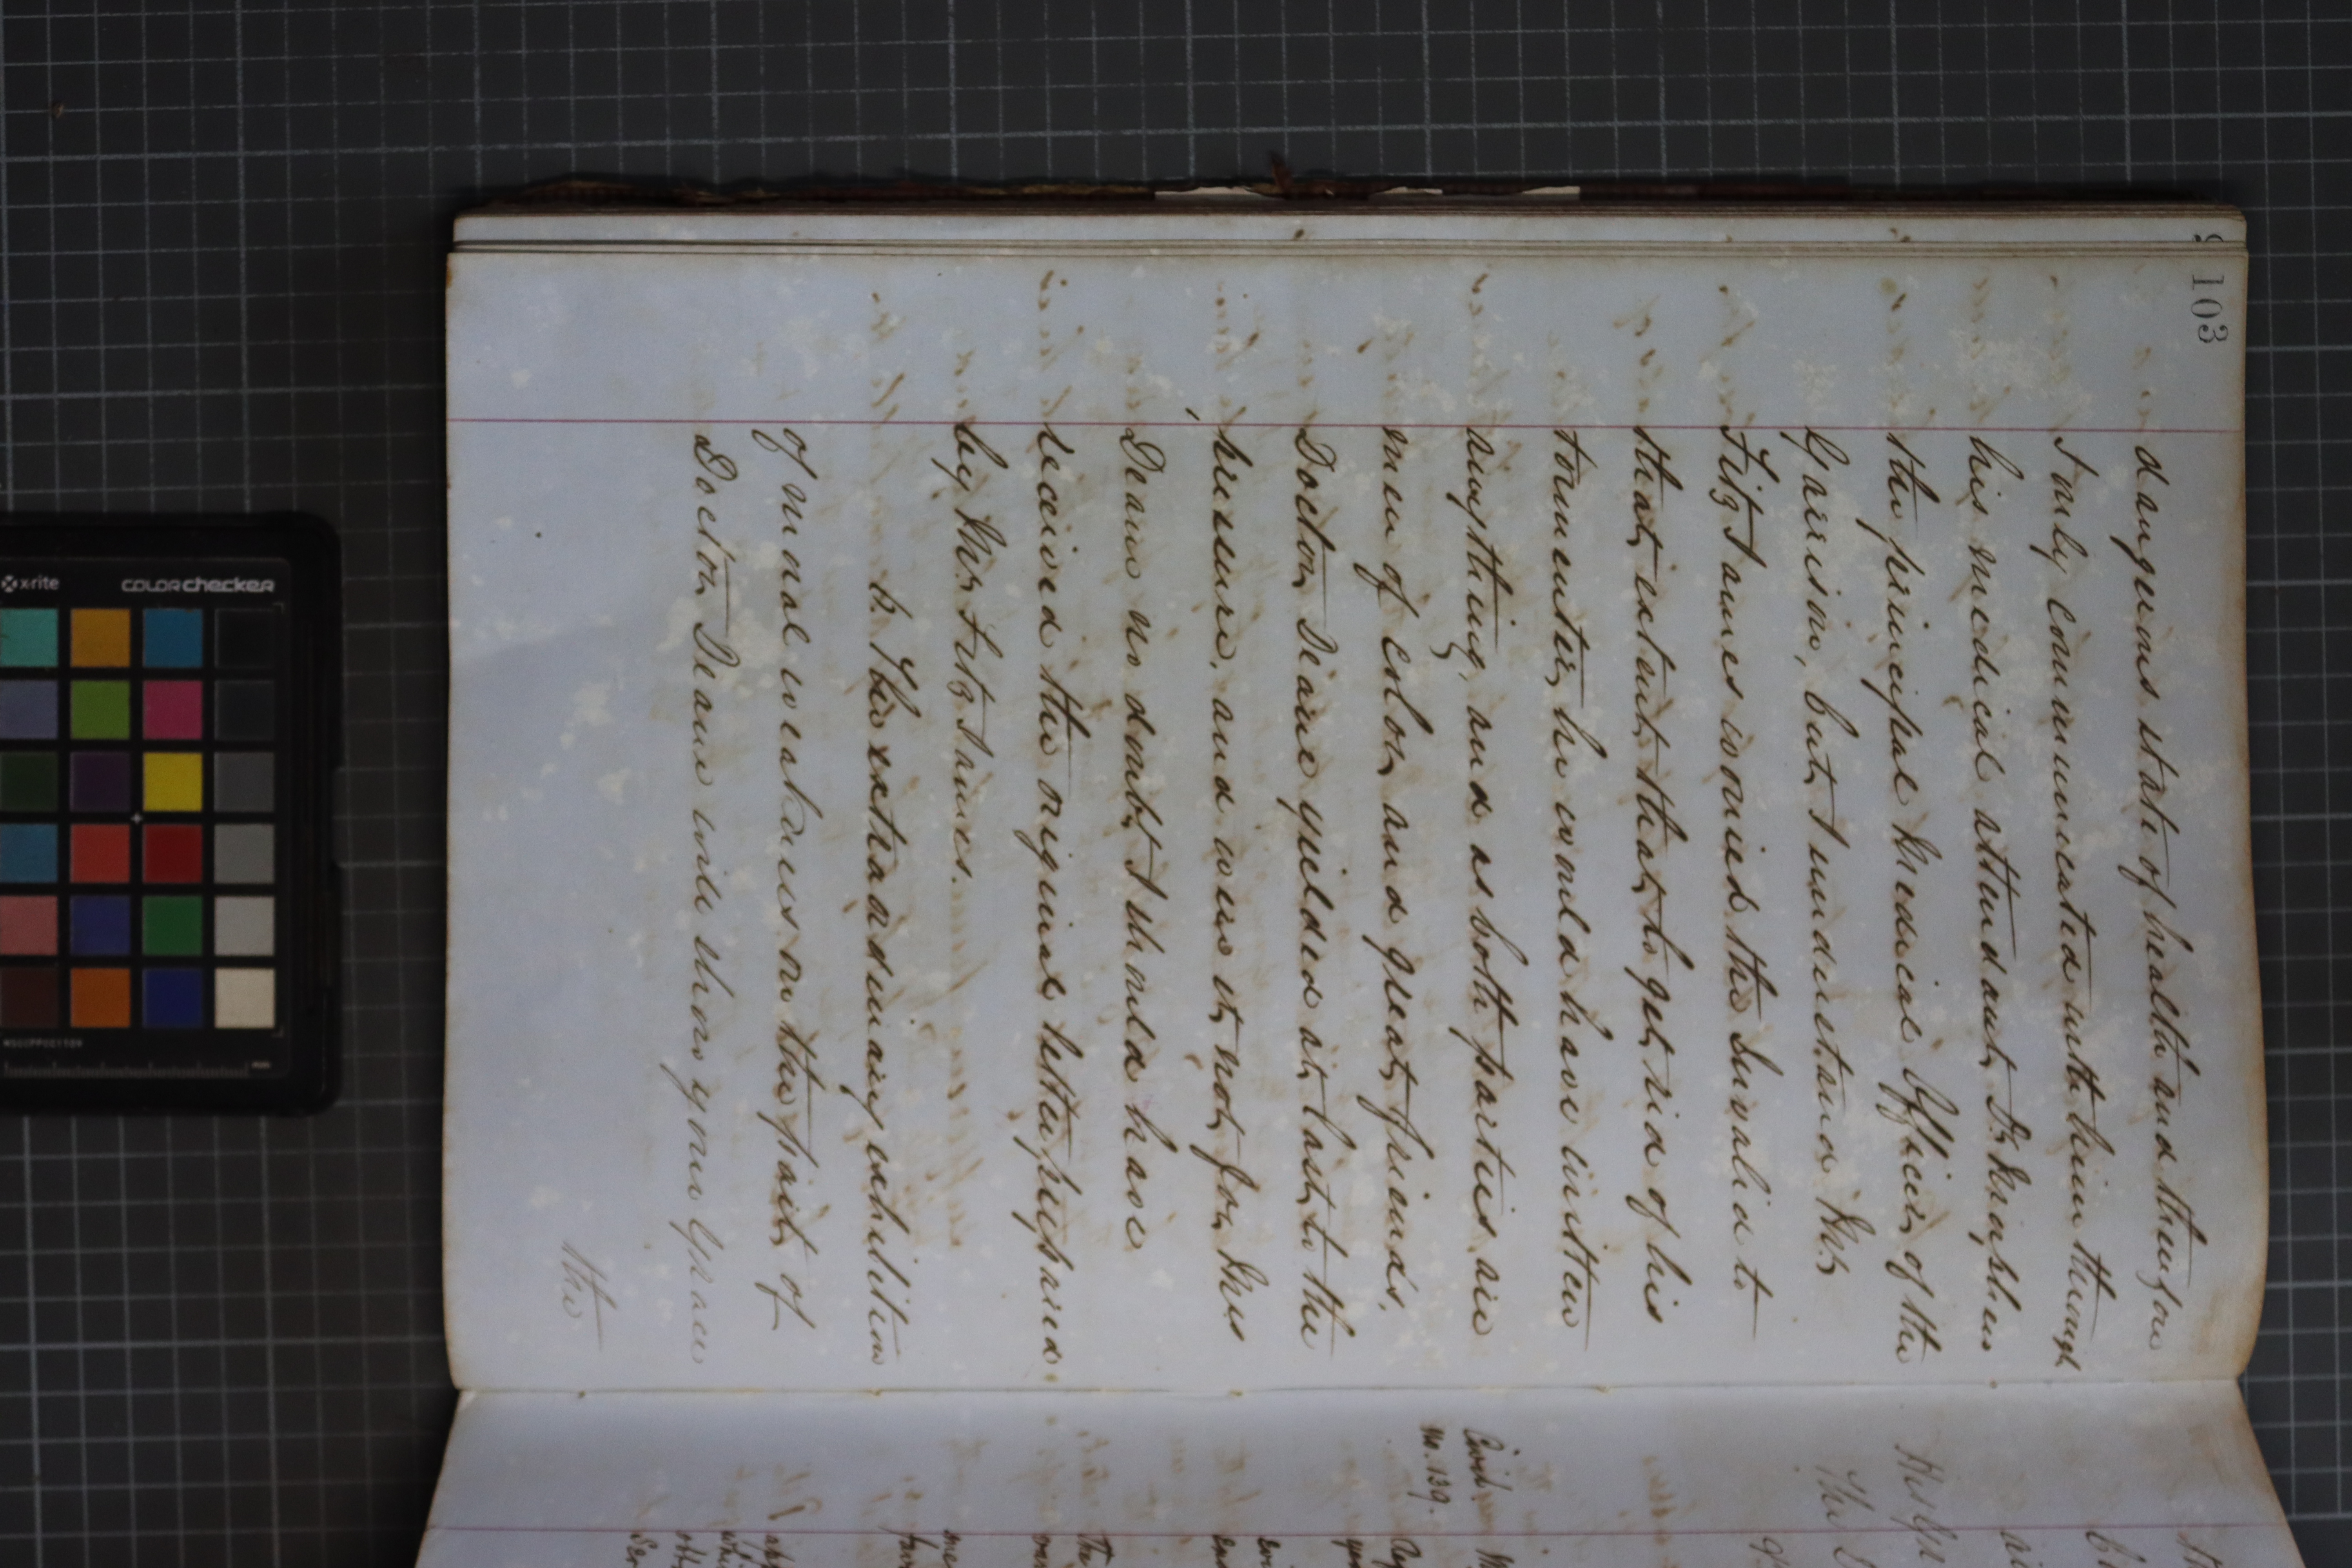 103
dangerous state of health and therefore
I only communicated with him through
his medical attendant, Dr.
the principal Medical Officer of the
Garrison, but, I understand Mr.
FitzJames worried the Invalid to
that, extent, that, to get, rid of his
tormenter, he would have written
anything, and as both parties are
men of color, and great, friends,
Doctor Deane yielded at, last, to the
pressure, and were it, not, for Mrs
Deane no doubt, I should have
received the original letter prepared
by Mr. FitzJames.
6. The extraordinary exhibition
of moral weakness on the part, of
Doctor Deane will show your Grace
the
Civil
No. 139.
His Gr
The D